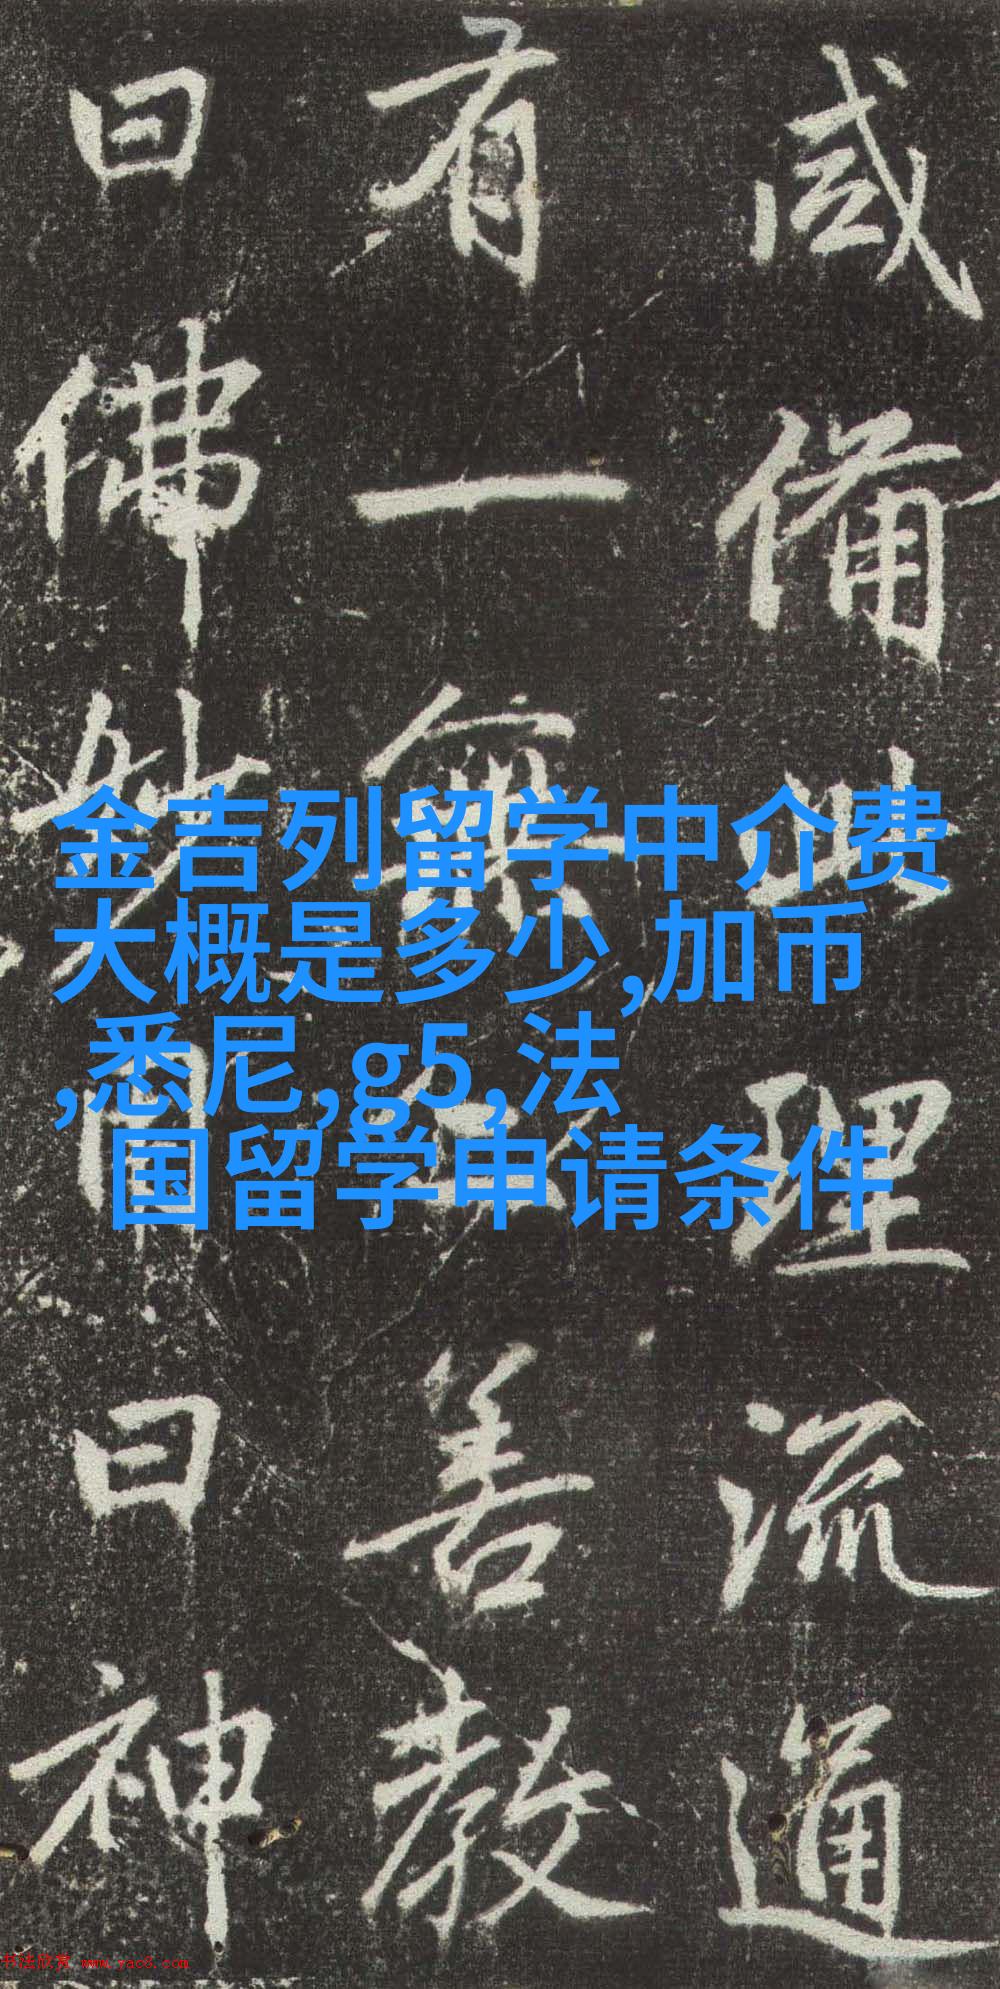 咸備此理流通
有一無二善教
曰佛妙用曰神
金吉列留学中介费
大概是多少,加币
,悉尼,g5,法
国留学申请条件
书法欣赏 www.yac8.com